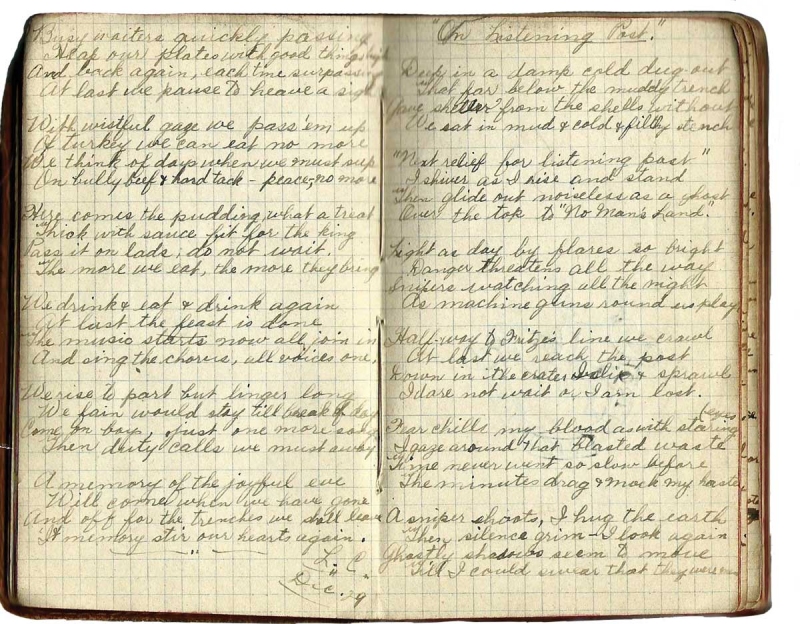 Busy waiters quickly passing
Heap our plates with good things high
And back again, each time surpassing
At last we pause to heave a sigh
With wistful gaze we pass 'em up
Of turkey we can eat no more
We think of days when we must sup
On bully beef & hard tack - peace, no more
Here comes the pudding, what a treat
Thick with sauce fit for the king
Pass it on lads, do not wait.
The more we eat, the more they bring
We drink & eat & drink again
At last the feast is done
The music starts now all join in
And sing the chorus, all voices one.
We rise to part but linger long
We fain would stay till break of day
Come on boys, just one more song
Then duty calls we must away
A memory of the joyful eve
Will come when we have gone
And off for the trenches we shall leave
It memory stir our hearts again.
L. C.
Dec. 29
"On Listening Post."
Deep in a damp cold dug-out
That far below the muddy trench
Gave shelter from the shells without
We sat in mud & cold & filthy stench
"Next relief for listening post"
I shiver as I rise and stand
Then glide out noiseless as a ghost
Over the top to "No Man's Land".
Light as day by flares so bright
Danger threatens all the way
Snipers watching all the night
As machine guns round us play
Half-way to Fritz's line we crawl
At last we reach the post
Down in the crater I slip & sprawl
I dare not wait or I am lost.
Fear chills my blood as with staring
eyes
I gaze around that blasted waste
Time never went so slow before
The minutes drag & mock my haste
A sniper shoots, I hug the earth
Then silence grim - I look again
Ghostly shadows seem to move
Till I could swear that they were men